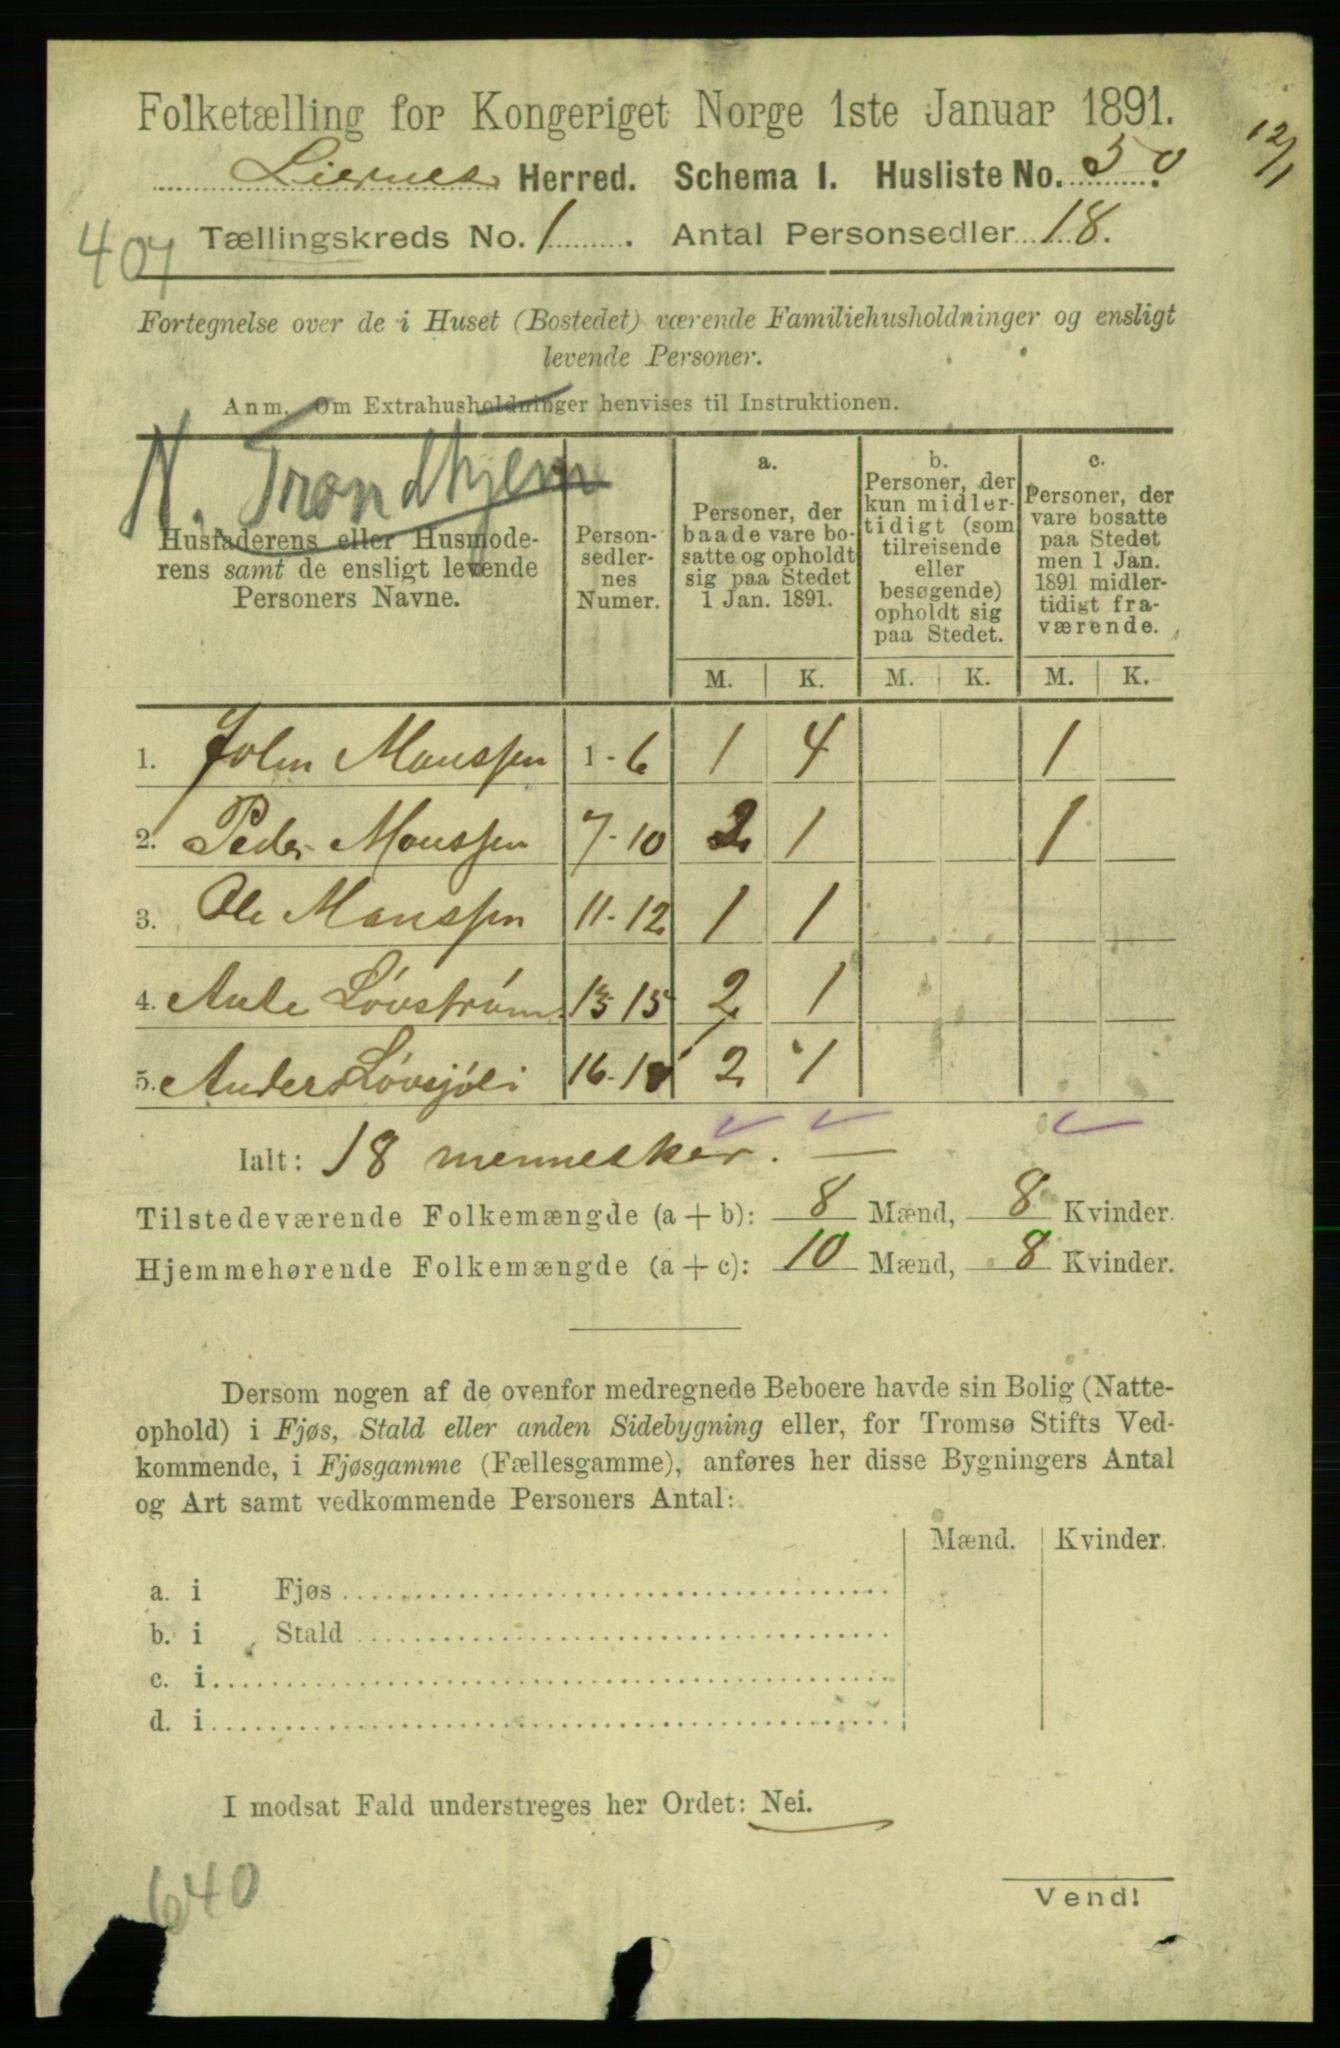 Folketælling for Kongeriget Norge 1ste Januar 1891.
12/1
Liernes Herred. Schema 1. Husliste No. 50
407
Tællingskreds No. 1. Antal Personsedler 18.
Fortegnelse over de i Huset (Bostedet) værende Familiehusholdninger og ensligt
levende Personer.
Anm. Om Extrahusholdninger henvises til Instruktionen.
N. Trondhjem
Husfaderens eller Husmode-
rens samt de ensligt levende
Personers Navne.
Person-
sedler-
nes
Numer.
a.
Personer, der
baade vare bo-
satte og opholdt
sig paa Stedet
1 Jan. 1891.
b.
Personer, der
kun midler-
tidigt (som
tilreisende
eller
besøgende)
opholdt sig
paa Stedet.
c.
Personer, der
vare bosatte
paa Stedet
men 1 Jan.
1891 midler-
tidigt fra-
værende.
M. K. M. K. M. K.
1. John Manssen 1-6 1 4 1
2. Peder Manssen 7-10 2 1 1
3. Ole Manssen 11-12 1 1
4. Ante Løvstrøm 13-15 2 1
5. Anders Løvsjøli 16-18 2 1
Ialt: 18 mennesker. —
Tilstedeværende Folkemængde (a + b): 8 Mænd, 8 Kvinder.
Hjemmehørende Folkemængde (a + c): 10 Mænd, 8 Kvinder.
Dersom nogen af de ovenfor medregnede Beboere havde sin Bolig (Natte-
ophold) i Fjøs, Stald eller anden Sidebygning eller, for Tromsø Stifts Ved-
kommende, i Fjøsgamme (Fællesgamme), anføres her disse Bygningers Antal
og Art samt vedkommende Personers Antal:
Mænd. Kvinder.
a. i Fjøs
b. i Stald
c. i
d. i
I modsat Fald understreges her Ordet: Nei.
640
Vend!